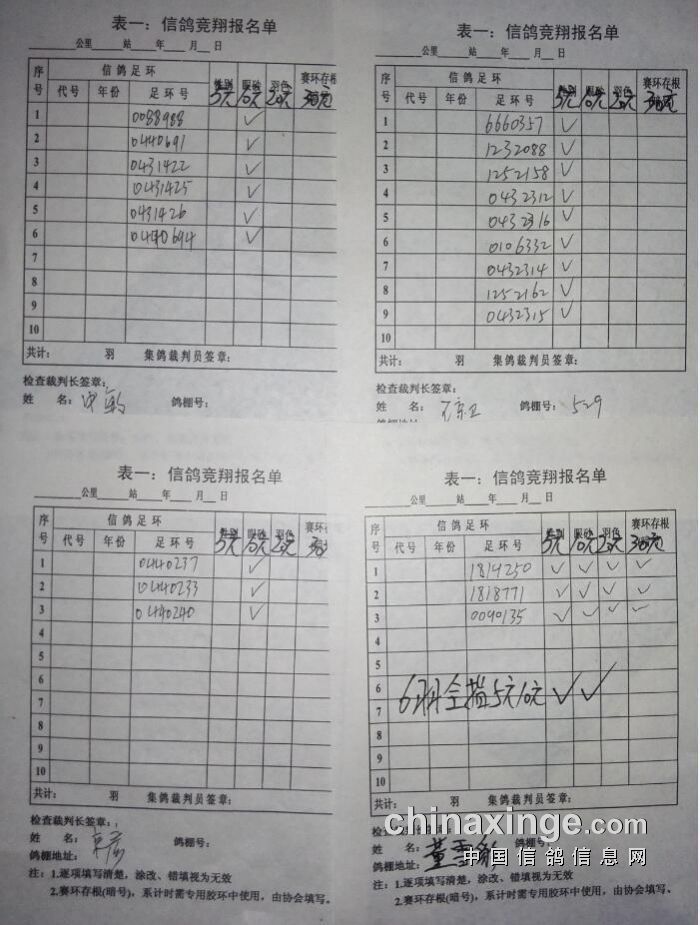 表一：信鸽竞翔报名单
公里 站 年 月 日
序号 信鸽足环 5元 10元 20元 赛环存根
代号 年份 足环号
1 0088988 ✓
2 0440691 ✓
3 0431422 ✓
4 0431425 ✓
5 0431426 ✓
6 0440694 ✓
7
8
9
10
共计： 羽 集鸽裁判员签章：
检查裁判长签章：
姓 名： 鸽棚号：
表一：信鸽竞翔报名单
公里 站 年 月 日
序号 信鸽足环 5元 10元 20元 赛环存根
代号 年份 足环号
1 6660357 ✓
2 1232088 ✓
3 1252158 ✓
4 0432312 ✓
5 0432316 ✓
6 0106332 ✓
7 0432314 ✓
8 1252162 ✓
9 0432315 ✓
10
共计： 羽 集鸽裁判员签章：
检查裁判长签章：
姓 名： 鸽棚号： 529
表一：信鸽竞翔报名单
公里 站 年 月 日
序号 信鸽足环 5元 10元 20元 赛环存根
代号 年份 足环号
1 0440237 ✓
2 0440233 ✓
3 0440240 ✓
4
5
6
7
8
9
10
共计： 羽 集鸽裁判员签章：
检查裁判长签章：
姓 名： 鸽棚号：
鸽棚地址：
注：1.逐项填写清楚，涂改、错填视为无效
2.赛环存根(暗号)，系计时需专用胶环中使用，由协会填写。
表一：信鸽竞翔报名单
公里 站 年 月 日
序号 信鸽足环 5元 10元 20元 赛环存根
代号 年份 足环号
1 1814250 ✓ ✓ ✓ ✓
2 1818771 ✓ ✓ ✓ ✓
3 0090135 ✓ ✓ ✓ ✓
4
5
6
7 6羽全指5元10元 ✓ ✓
8
9
10
共计： 羽
姓 名： 鸽棚号：
鸽棚地址：
注：1.逐项填写清楚，涂改、错填视为无效
2.赛环存根(暗号)，系计时需专用胶环中使用，由协会填写。
chinaxinge.com
中国信鸽信息网